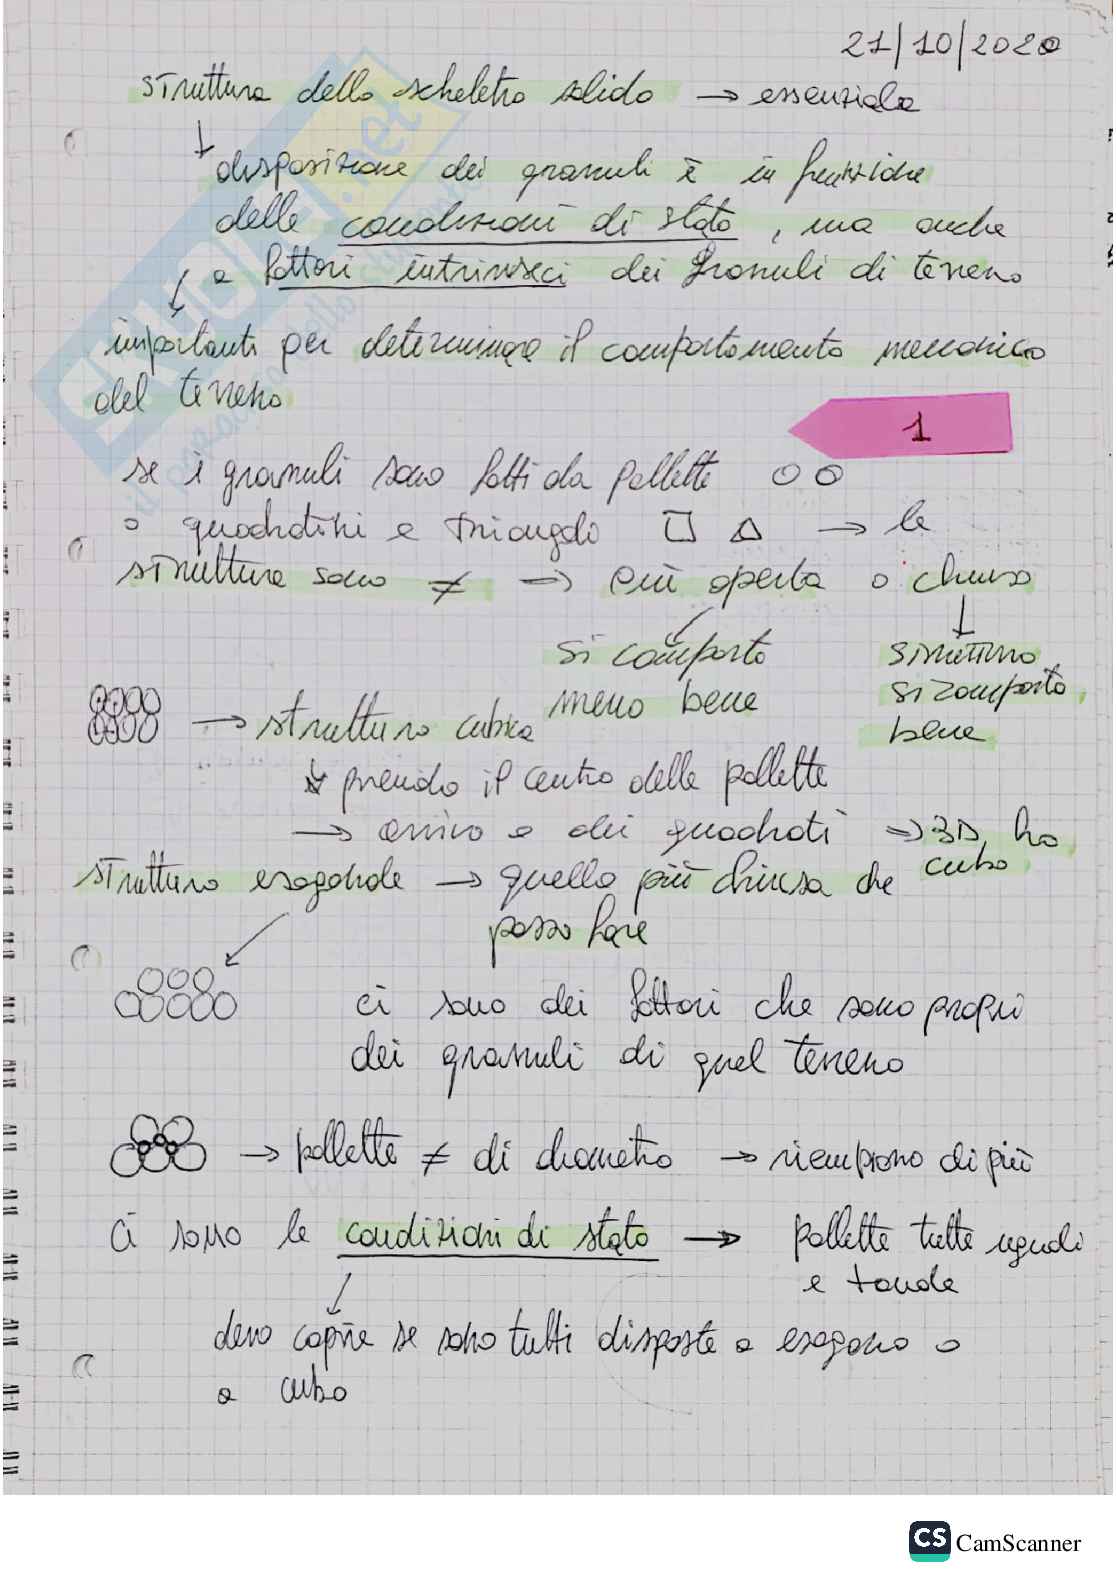 21/10/2020
struttura dello scheletro solido → essenziale
↓ disposizione dei granuli è in funzione
delle condizioni di stato, ma anche
a fattori intrinseci dei granuli di terreno
importanti per determinare il comportamento meccanico
del terreno
1
se i granuli sono fatti da pallette
o quadratini e triangolo □ △ → le
strutture sono ≠ → più aperta o chiusa
si comporta
meno bene
struttura
si comporta
bene
→ struttura cubica
↳ prendo il centro delle pallette
→ arrivo a dei quadrati => 3D, ho
cubo
struttura esagonale → quella più chiusa che
posso fare
ci sono dei fattori che sono propri
dei granuli di quel terreno
→ pallette ≠ di diametro → riempiono di più
ci sono le condizioni di stato → pallette tutte uguali
e tonde
devo capire se sono tutti disposte a esagono o
a cubo
SKUOLA.net
CS CamScanner